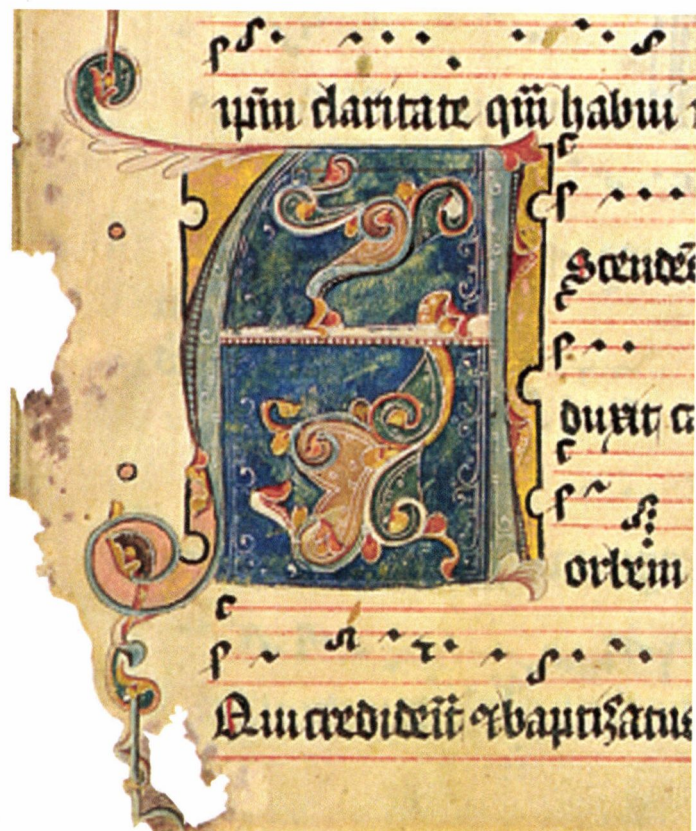 ip̄m claritate qm̄ habui
A
Scendens
duxit ca
orbem
Qui crediderīt ⁊ baptizatus